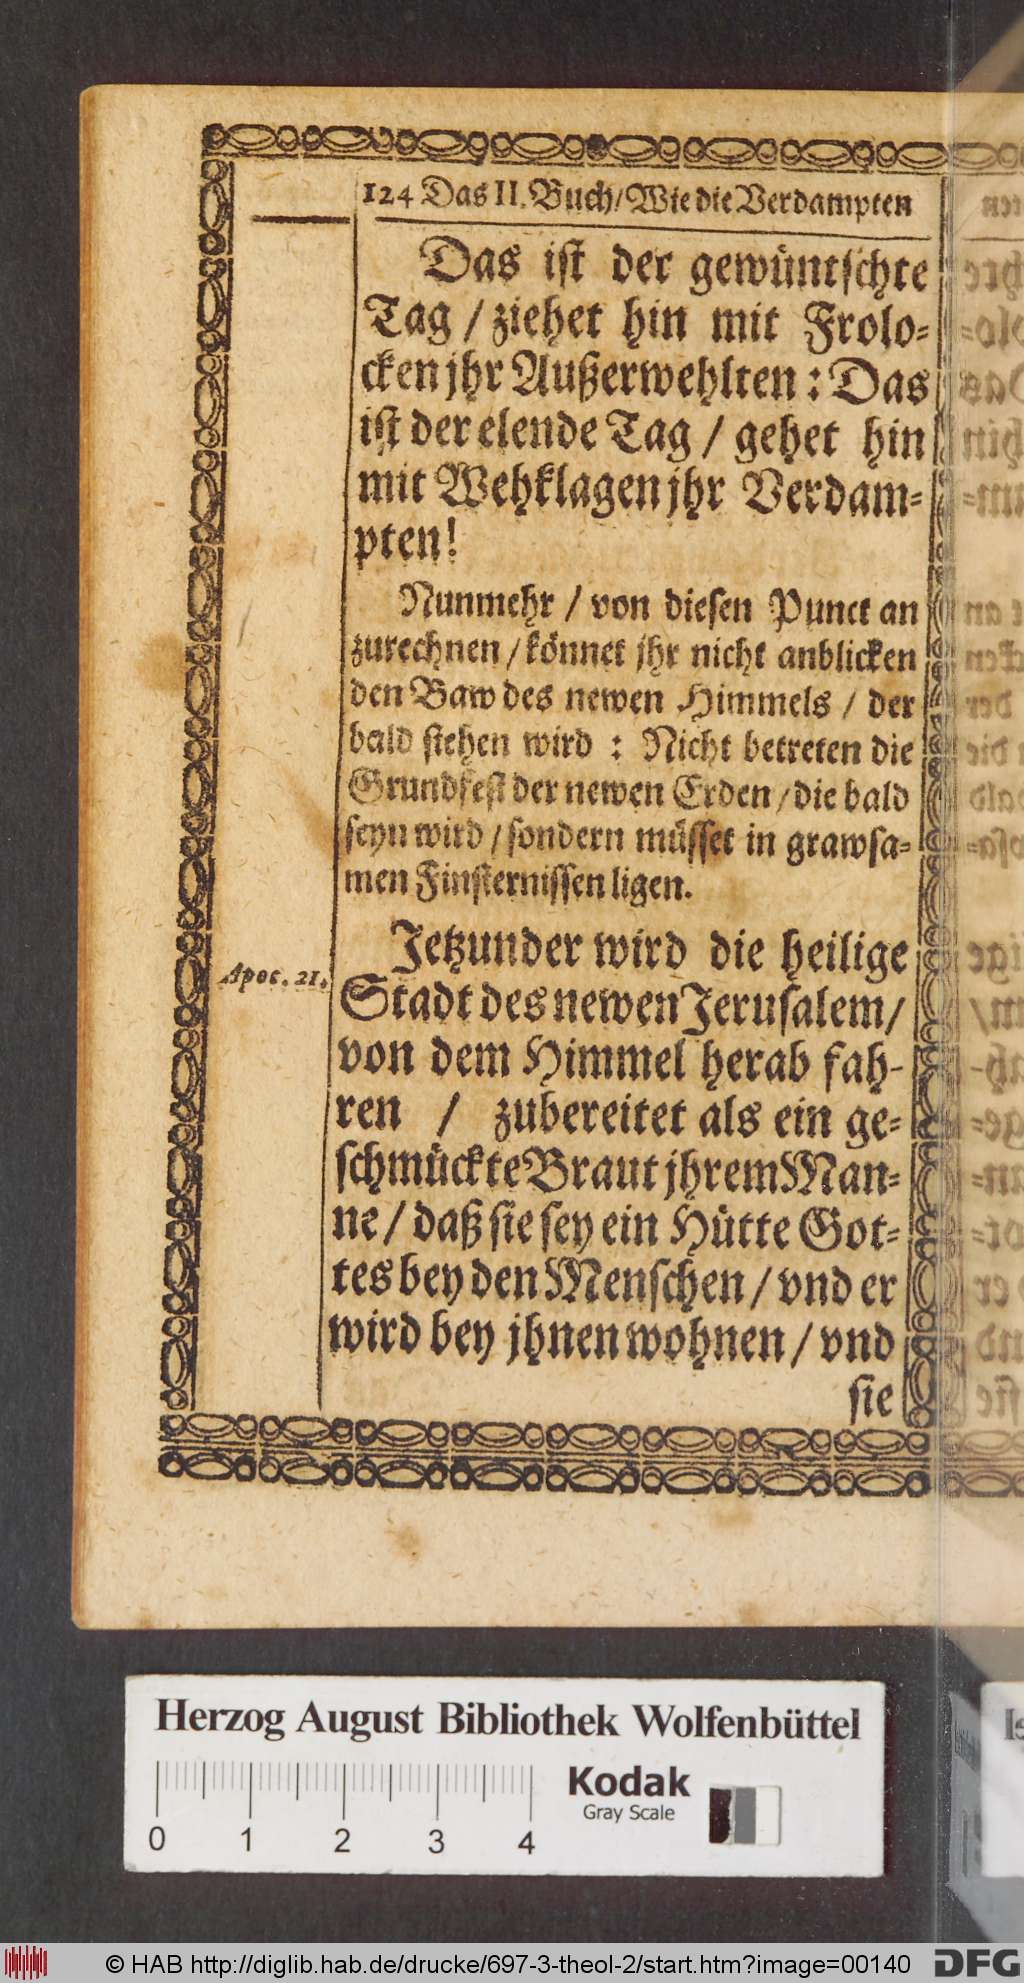 124 Das II. Buch/ Wie die Verdampten
Das ist der gewüntschte
Tag / ziehet hin mit Frolo-
cken jhr Außerwehlten : Das
ist der elende Tag / gehet hin
mit Wehklagen jhr Verdam-
pten!
Nunmehr / von diesen Punct an
zurechnen / könnet jhr nicht anblicken
den Baw des newen Himmels / der
bald stehen wird : Nicht betreten die
Grundfest der newen Erden / die bald
seyn wird / sondern müsset in grawsa-
men Finsternissen ligen.
Jetzunder wird die heilige
Apoc. 21.
Stadt des newen Jerusalem/
von dem Himmel herab fah-
ren / zubereitet als ein ge-
schmückte Braut jhrem Man-
ne / daß sie sey ein Hütte Got-
tes bey den Menschen / vnd er
wird bey jhnen wohnen / vnd
sie
Herzog August Bibliothek Wolfenbüttel
Kodak
Gray Scale
0 1 2 3 4
© HAB http://diglib.hab.de/drucke/697-3-theol-2/start.htm?image=00140
DFG